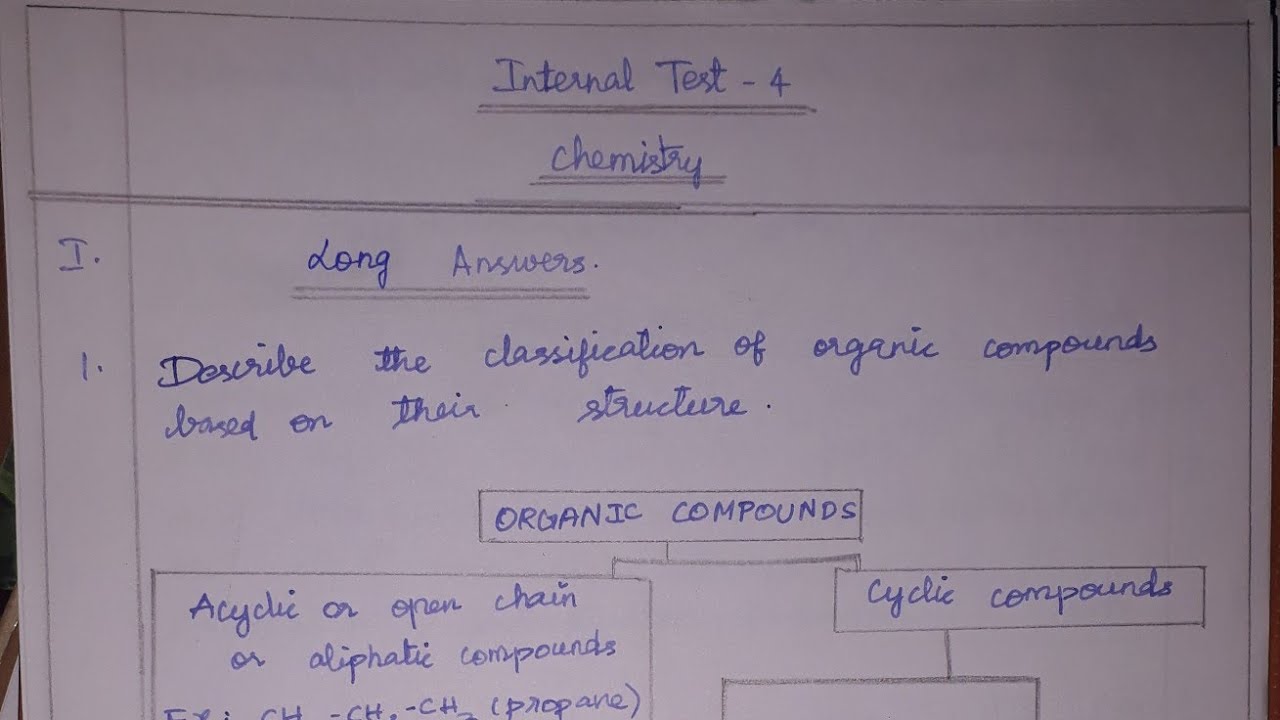 Internal Test - 4
Chemistry
I. Long Answers.
1. Describe the classification of organic compounds
based on their structure.
ORGANIC COMPOUNDS
Acyclic or open chain
or aliphatic compounds
Cyclic compounds
Ex: CH3-CH2-CH3 (propane)